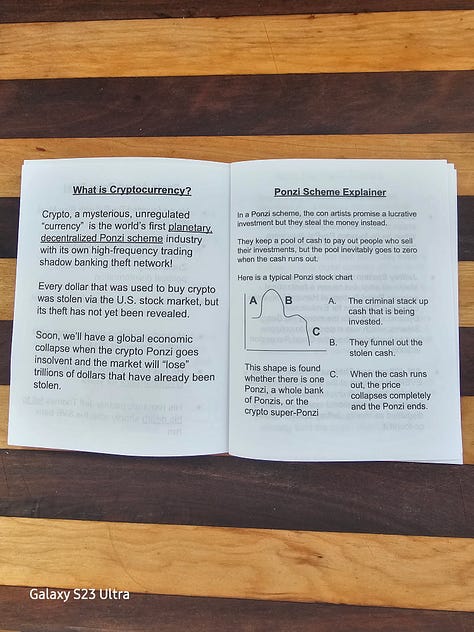 What is Cryptocurrency?
Crypto, a mysterious, unregulated
“currency” is the world's first planetary,
decentralized Ponzi scheme industry
with its own high-frequency trading
shadow banking theft network!
Every dollar that was used to buy crypto
was stolen via the U.S. stock market, but
its theft has not yet been revealed.
Soon, we'll have a global economic
collapse when the crypto Ponzi goes
insolvent and the market will “lose”
trillions of dollars that have already been
stolen.
Ponzi Scheme Explainer
In a Ponzi scheme, the con artists promise a lucrative
investment but they steal the money instead.
They keep a pool of cash to pay out people who sell
their investments, but the pool inevitably goes to zero
when the cash runs out.
Here is a typical Ponzi stock chart
A
B
C
This shape is found
whether there is one
Ponzi, a whole bank
of Ponzis, or the
crypto super-Ponzi
A. The criminal stack up
cash that is being
invested.
B. They funnel out the
stolen cash.
C. When the cash runs
out, the price
collapses completely
and the Ponzi ends.
Galaxy S23 Ultra